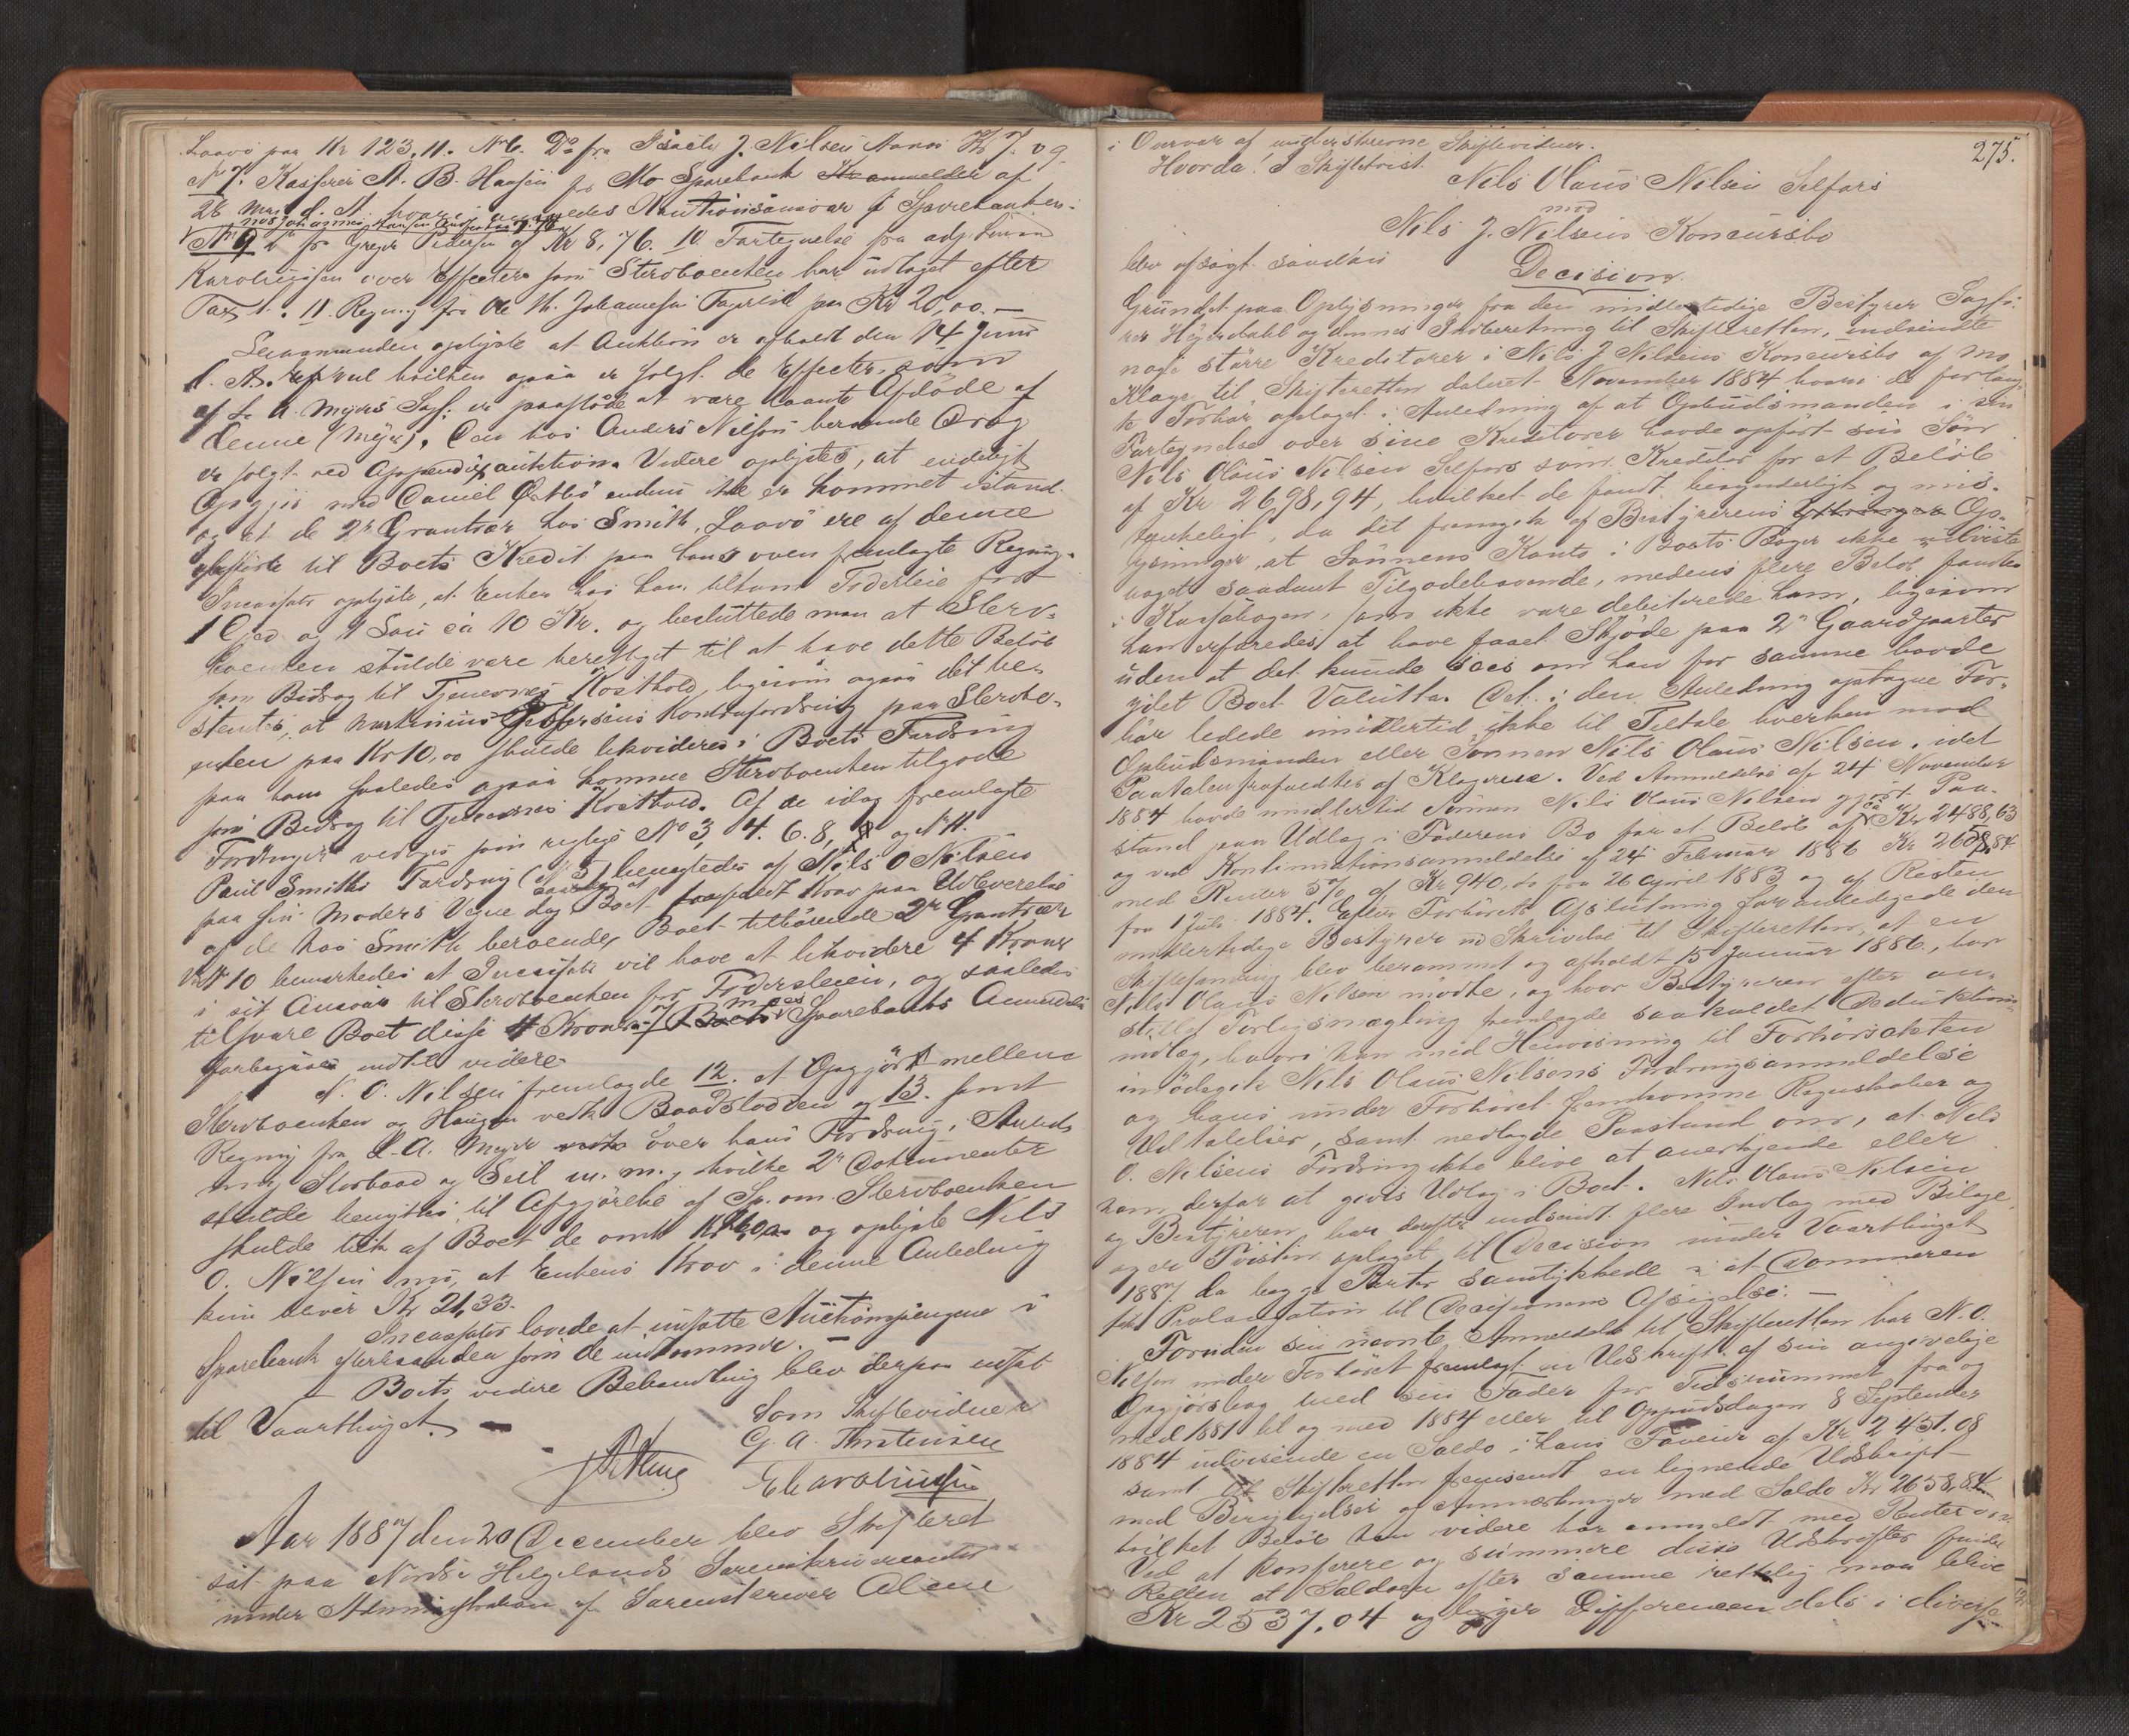 Laavö paa Kr 123,11. No 6. Do fra Isach J. Nilsen Kr 7. og
No 7. Kasserer A. B. Hansen for Mo Sparebank af
28 Mai d. A. hvori anmeldes Kautionsansvar f Sparebanken
No 9 Do fra Greger Pedersen af Kr 8,76. 10 Fortegnelse fra adj. Lensm
Karoliussen over Effecter som Stervboenken har udtaget efter
Taxt. 11. Regning fra Ole M. Johannesen paa Kr 20,00. –
Lensmanden oplyste at Auktion er afholdt den 14 Juni
d. A. ved hvilken ogsaa er solgt de Effecter som
af L. A. Meyers Sagf. er paastaaede at være laante Afdöde af
denne (Meyer). Den hos Anders Nilsen beroende Orog
er solgt ved Appendixauktion. Videre oplystes, at endeligt
Opgjör med Daniel Örtbö endnu ikke er kommet istand
og at de 2de Grantræer hos Smith, Laavö ere af denne
opförte til Boets Kredit paa hans oven fremlagte Regning.
Incassator oplyste, at Enken hos ham tilkom Foderleie for
1 Gjed og 1 Sau ca 10 Kr. og besluttede man at Sterv-
boenken skulde være berettiget til at have dette Beløb
som Bidrag til Tjenernes Kosthold, ligesom ogsaa det be-
stemtes, at Kontrafordring paa Stervbo-
enken paa Kr 10,00 skulde likvideres i Boets Fordring
paa ham saaledes ogsaa komme Stervboenken tilgode
som Bidrag til Tjenernes Kosthold. Af de idag fremlagte
Fordringer vedtoges som rigtige No 3, 4. 6. 8, og No 11.
Paul Smiths Fordring (N 5) benegtedes af Nils O Nilsen
paa sin Moders Vegne dog Boet Krav paa Udleverelse
af de hos Smith beroende, Boet tilhörende 2de Grantræer
Ved No 10 bemærkedes at Incassator vil have at likvidere 4 Kroner
i sit Ansvar til Stervboenken for Foderleien, og saaledes
tilsvare Boet disse 4 Kroner. Moes Sparebanks Anmeldelse
forbigaaes indtil videre.
N. O. Nilsen fremlagde 12. et Opgjör mellem
Stervboenken og Haugen vedk Baadstödden og 13. samt
Regning fra L. A. Meyer over hans Fordring, Anneks
Storbaad og Seil m. m., hvilke 2de Dokumenter
skulde benyttes til Afgjörelse af Sp. om Stervboenken
skulde tilk af Boet de omh Kr og oplyste Nils
O. Nilsen nu, at Enkens Krav i denne Anledning
kun bliver Kr 21,33.
Incassator lovede at indsætte Auktionspengene i
Sparebank efterhaanden som de indkommer. –
Boets videre Behandling blev derpaa udsat
til Vaarthinget. –
Som Skiftevidner
G. A. Torstensen
E Caroliussen
Aar 1887 den 20 December blev Skifteret
sat paa Nordre Helgelands Sorenskriverembede
under Administration af Sorenskriver Alme
275.
i Overvær af underskrevne Skiftevidner.
Hvorda! I Skiftetvist
Nils Olaus Nilsen Selfors
mod
Nils J. Nilsens Konkursbo
blev afsagt saadan
Decision.
Grundet paa Oplysninger fra den midlertidige Bestyrer Sagfö-
rer Heyerdahl og dennes Indberetning til Skifteretten, indsendte
nogle større Kreditorer i Nils J. Nilsens Konkursbo af Mo
Klage til Skifteretten dateret November 1884 hvori de forlang-
te Forhør optaget i Anledning af at Opbudsmanden i sin
Fortegnelse over sine Kreditorer havde opfört sin Sön
Nils Olaus Nilsen Selfors som Kreditor for et Belöb
af Kr 2698,94, hvilket de fandt besynderligt og mis-
tænkeligt, da det fremgik af Bestyrerens Op-
lysninger, at Sönnens Konto i Boets Böger ikke udviste
noget saadant Tilgodehavende, medens flere Belöb fandtes
i Kassabogen, som ikke vare debiterede ham, ligesom
han erfaredes at have faaet Skjöde paa 2de Gaardparter
uden at det kunde sees om han for samme havde
ydet Boet Valutta. Det i den Anledning optagne For-
hör ledede imidlertid ikke til Tiltale hverken mod
Opbudsmanden eller Sönnen Nils Olaus Nilsen, idet
Paatalen frafaldtes af Klagerne. Ved Anmeldelse af 24 November
1884 havde imidlertid Sönnen Nils Olaus Nilsen gjort Paa-
stand paa Udlæg i Faderens Bo for et Belöb af Kr 2488,63
og ved Kontinuationsanmeldelse af 24 Februar 1886 Kr 2658,84
med Renter 5% af Kr 940, fra 26 April 1883 og af Resten
fra 1 Juli 1884. Efter Forhörets Afslutning foranledigede den
midlertidige Bestyrer ved Skrivelse til Skifteretten, at en
Skiftesamling blev berammet og afholdt 15 Januar 1886, hvor
Nils Olaus Nilsen mødte, og hvor Bestyreren efter an-
stillet Forligsmægling fremlagde saakaldet Deduktions-
indlæg, hvori han med Henvisning til Forhörsakten
imödegik Nils Olaus Nilsens Fordringsanmeldelse
og hans under Forhöret fremkomne Regnskaber og
Udtalelser, samt nedlagde Paastand om, at Nils
O. Nilsens Fordring ikke blive at anerkjende eller
ham derfor at gives Udlæg i Boet. Nils Olaus Nilsen
og Bestyreren har derefter indsendt flere Indlæg med Bilage,
og er Tvisten optaget til Decision under Vaarthinget
1887, da begge Parter samtykkede i at Dommeren
fik Prolongation til Decisionens Afsigelse. –
Foruden sin nævnte Anmeldelse til Skifteretten har N. O.
Nilsen under Forhöret fremlagt en Udskrift af sin angivelige
Opgjörsbog med sin Fader for Tidsrummet fra og
med 1881 til og med 1884 eller til Opbudsdagen 8 September
1884 udvisende en Saldo i hans Faveur af Kr 2451.08
samt til Skifteretten fremsendt en lignende Udskrift
med Berigtigelser og Anmærkninger med Saldo Kr 2658,84
hvilket Belöb han videre har anmeldt med Renter o. s. v.
Ved at konferere og summere disse Udskrifter finder
Retten at Saldoen efter samme rettelig maa blive
Kr 2537,04 og ligger Differencen dels i diverse